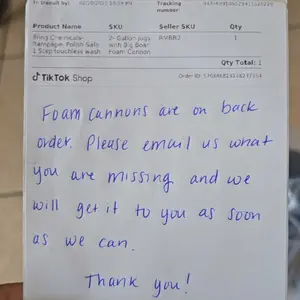 In transit by: 02/20/2025 10:59 PM Tracking
number:
Product Name SKU Seller SKU Qty
Bling Chemicals- 2- Gallon Jugs RSBB2 1
Rampage- Polish Safe with Big Boar
1 Step touchless wash Foam Cannon
Qty Total: 1
TikTok Shop Order ID:
Foam Cannons are on back
order. Please email us what
you are missing and we
will get it to you as soon
as we can.
Thank you!